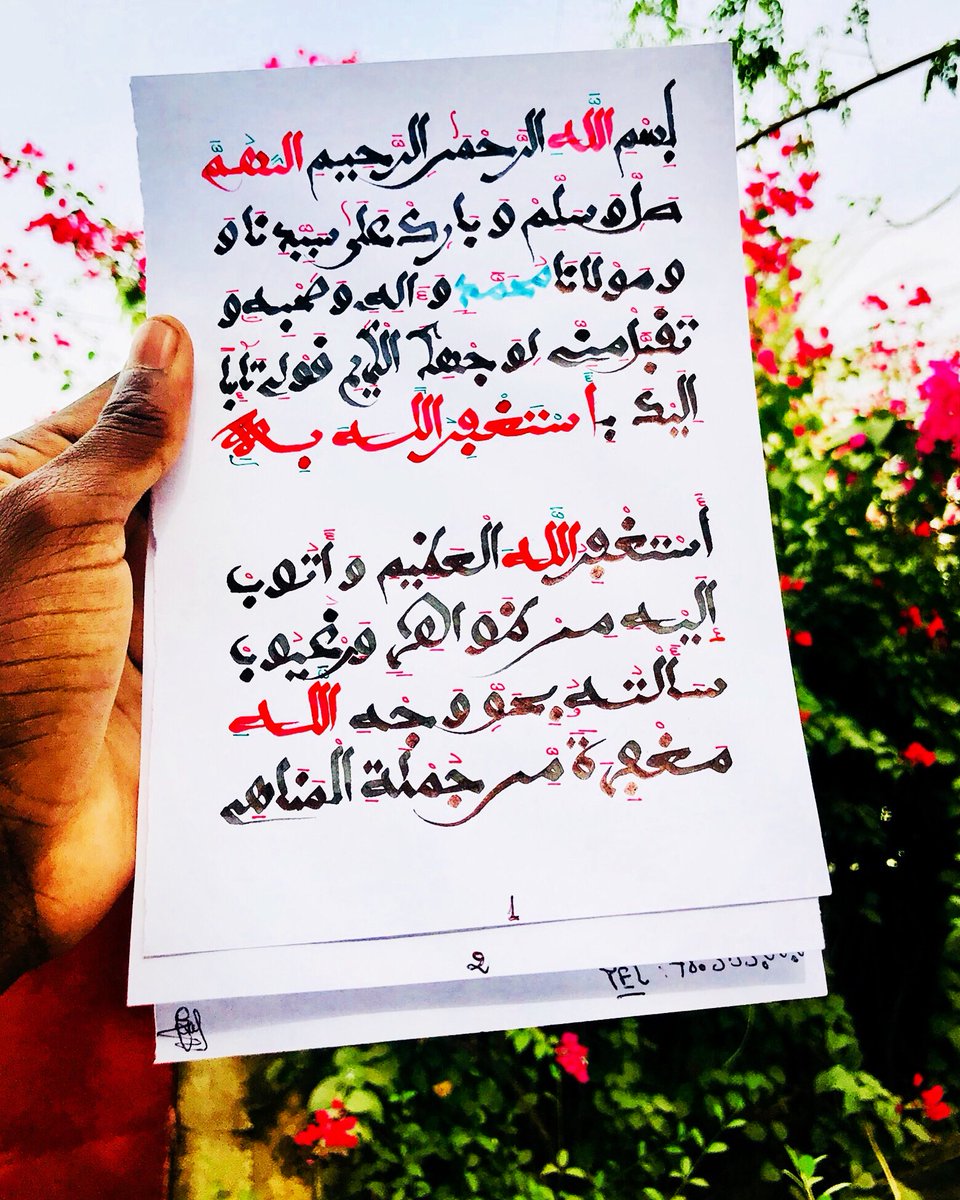 بسم الله الرحمن الرحيم اللهم
صل وسلم وبارك على سيدنا و
ومولانا محمد وآله وصحبه و
تقبل منه لوجهك الكريم قوله تائبا
إليك : أستغفر الله بالله
أستغفر الله العظيم وأتوب
إليه من ظواهر ومن غيوب
سألته بحق وجه الله
مغفرة من جملة المناهي
1
2
TEL :